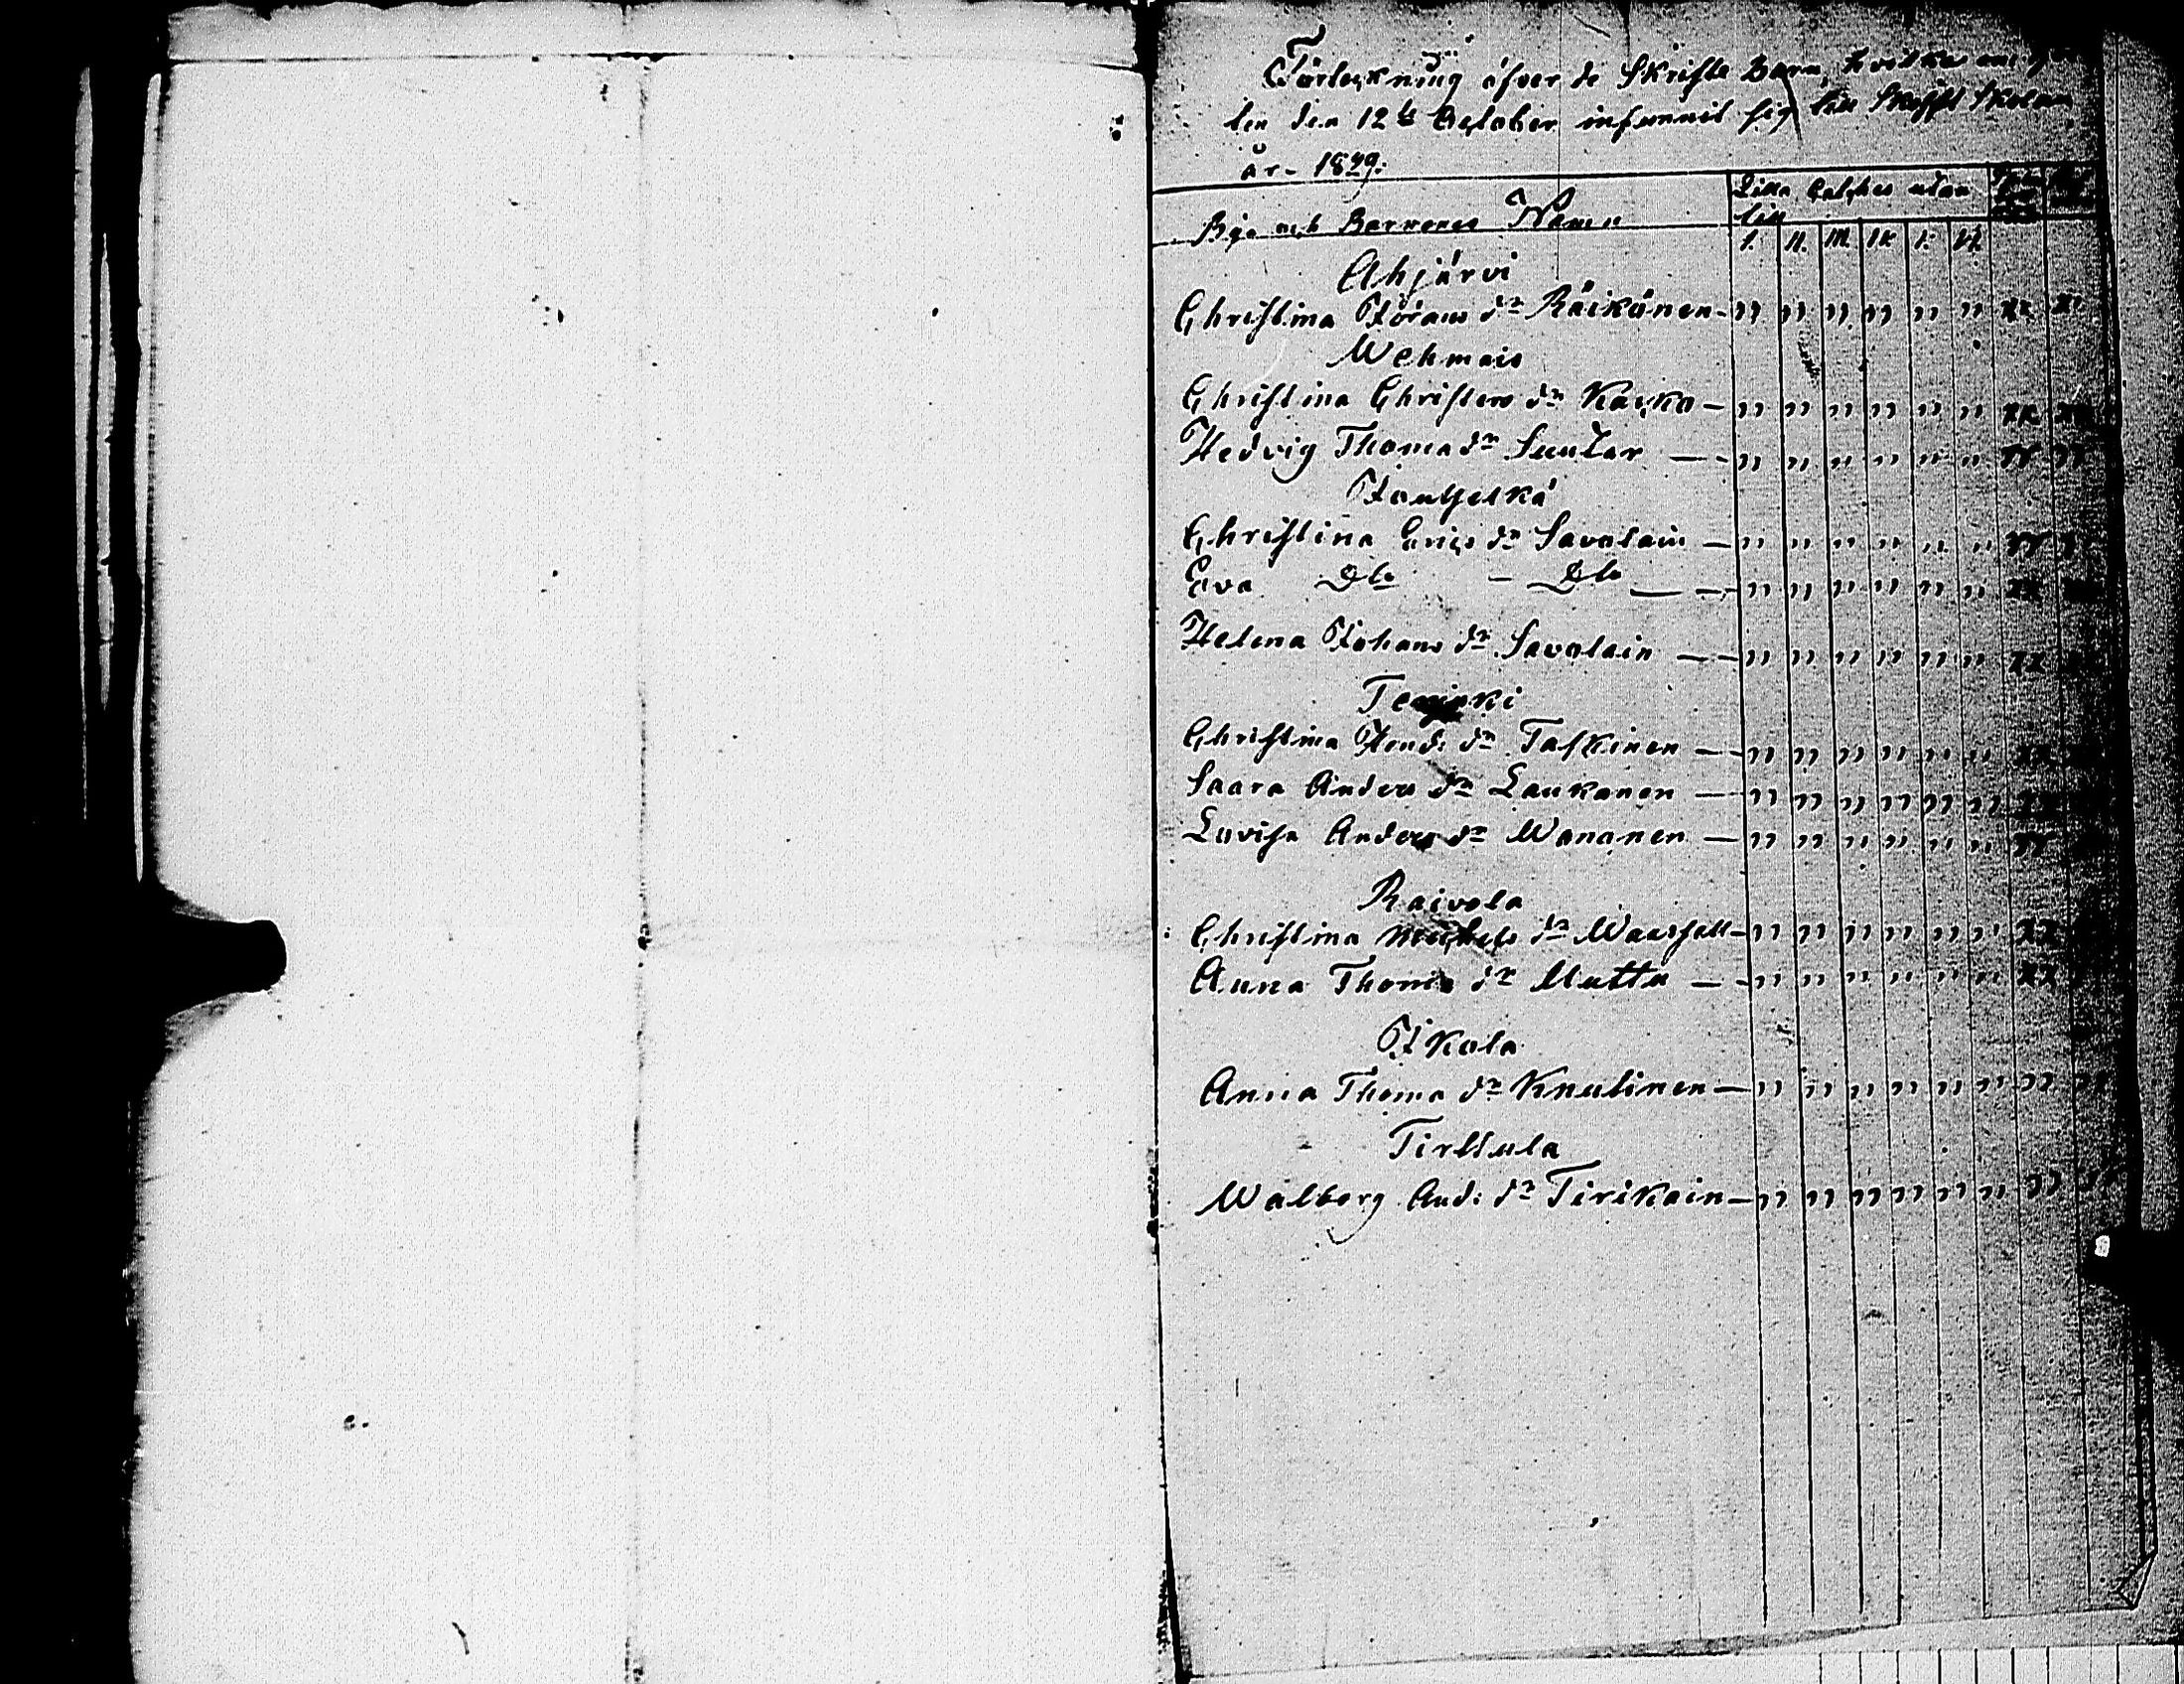 Förteckning öfver de Skrifte Barn, hvilka
ten den 12te October infunnit sig till Skrift Skolan
år 1829.
Bya och Barnenes Namn
Lilla Catches utan
till
I. II. III. IV V. VI.
Ahjärvi
Christina Görans dr Räikönen - " " " " " " xx x
Wehmais
Christina Christers dr Kaicko - " " " " " " xx xx
Hedvig Thoma dr Suutar - " " " " " " xx xx
Jautselkä
Christina Erics dr Savolain - " " " " " " xx
Eva Do - Do - " " " " " " xx
Helena Johans dr Savolain - " " " " " " xx
Christina Hend: dr Taskinen - " " " " " " xx
Saara Anders dr Laukanen - " " " " " " xx
Lovisa Anders dr Wananen - " " " " " " xx
Raivola
Christina Michels dr - " " " " " " xx
Anna Thoma dr Mutta - " " " " " " xx
Ikola
Anna Thoma dr Knutinen - " " " " " " "
Tirttula
Walborg And: dr Tirikain - " " " " " " "